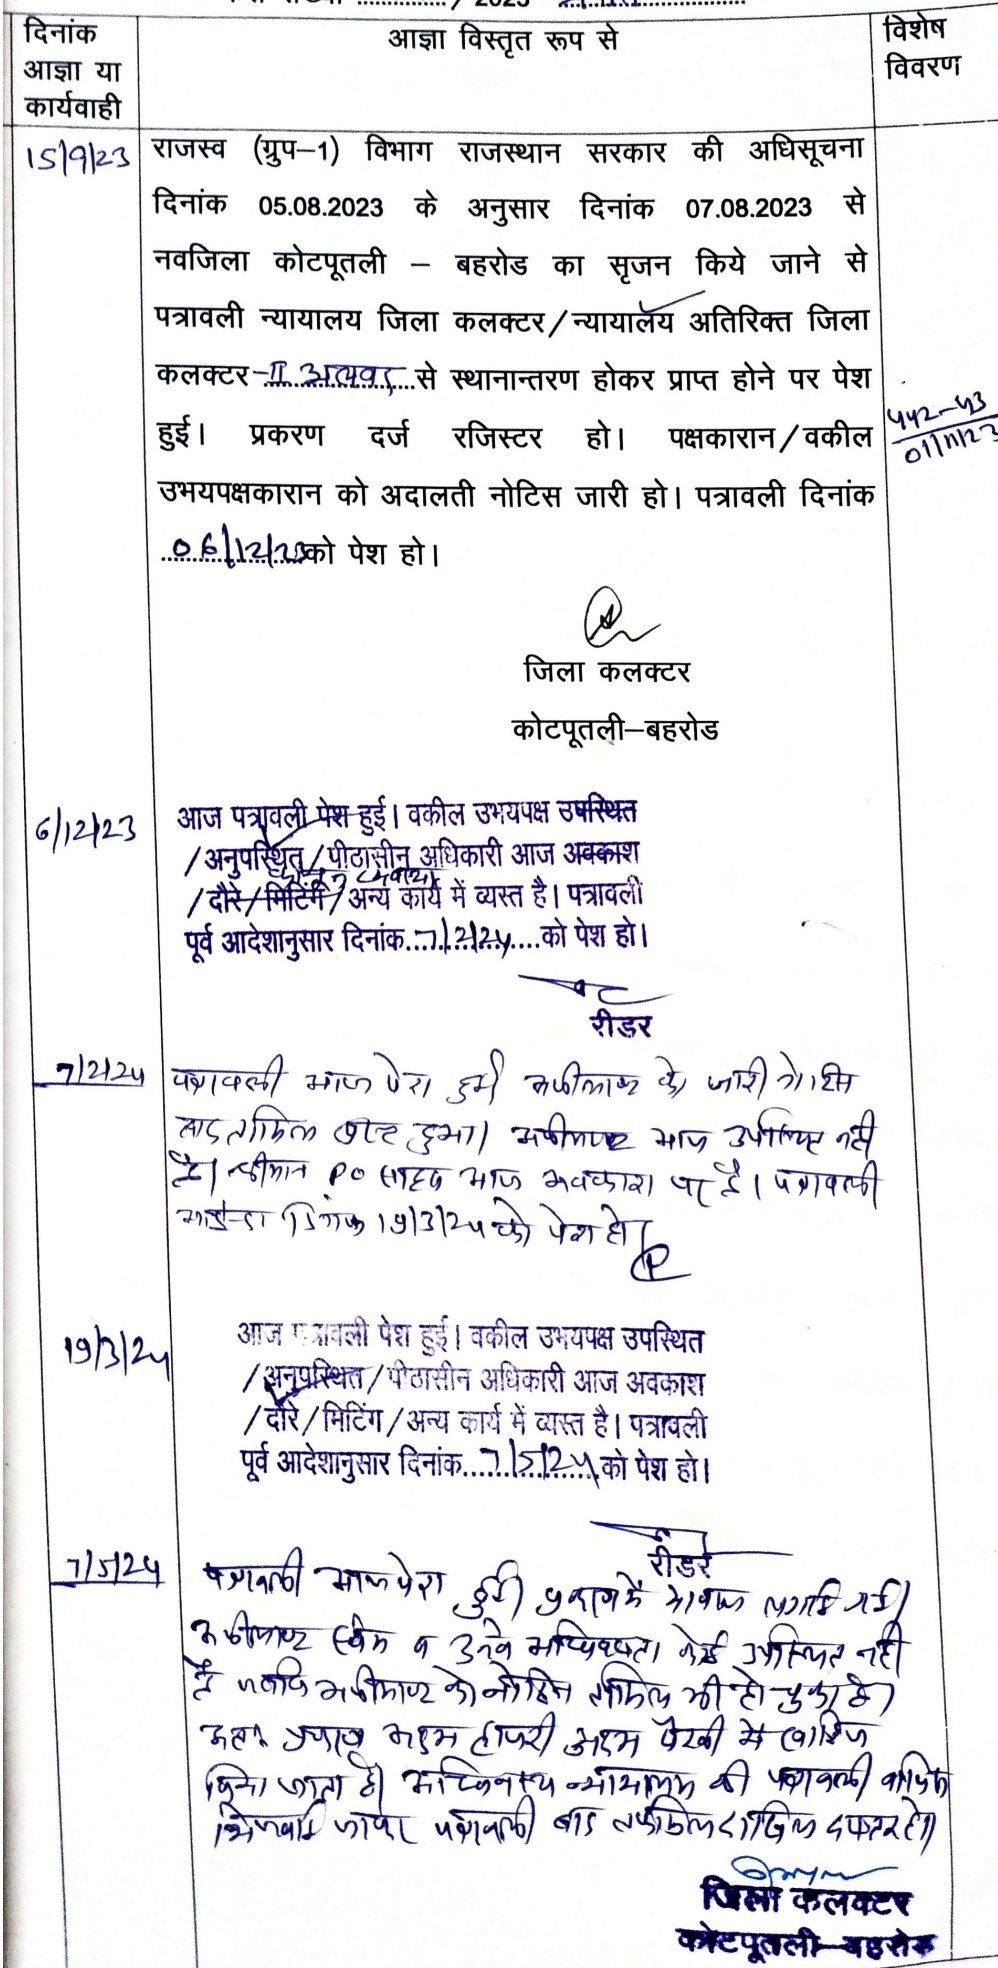 / 2023
दिनांक
आज्ञा या
कार्यवाही
आज्ञा विस्तृत रूप से
विशेष
विवरण
15/9/23
राजस्व (ग्रुप–1) विभाग राजस्थान सरकार की अधिसूचना
दिनांक 05.08.2023 के अनुसार दिनांक 07.08.2023 से
नवजिला कोटपूतली – बहरोड का सृजन किये जाने से
पत्रावली न्यायालय जिला कलक्टर/न्यायालय अतिरिक्त जिला
कलक्टर-II अलवर से स्थानान्तरण होकर प्राप्त होने पर पेश
हुई। प्रकरण दर्ज रजिस्टर हो। पक्षकारान/वकील
उभयपक्षकारान को अदालती नोटिस जारी हो। पत्रावली दिनांक
06/12/23 को पेश हो।
442-43
01/11/23
जिला कलक्टर
कोटपूतली–बहरोड
6/12/23
आज पत्रावली पेश हुई। वकील उभयपक्ष उपस्थित
/अनुपस्थित/पीठासीन अधिकारी आज अवकाश
/दौरे/मिटिंग/अन्य कार्य में व्यस्त है। पत्रावली
पूर्व आदेशानुसार दिनांक...7/2/24....को पेश हो।
रीडर
7/2/24
पत्रावली आज पेश हुई अपीलाण्ट को जारी नोटिस
बाद तामिल प्राप्त हुआ। अपीलाण्ट आज उपस्थित नही
है। श्रीमान PO साहब आज अवकाश पर है। पत्रावली
दिनांक 19/3/24 को पेश हो।
19/3/24
आज पत्रावली पेश हुई। वकील उभयपक्ष उपस्थित
/अनुपस्थित/पीठासीन अधिकारी आज अवकाश
/दौरे/मिटिंग/अन्य कार्य में व्यस्त है। पत्रावली
पूर्व आदेशानुसार दिनांक....7/5/24....को पेश हो।
रीडर
7/5/24
पत्रावली आज पेश हुई। प्रकरण मे आवाज लगाई गई।
अपीलाण्ट स्वंय व उनके अधिवक्ता कोई उपस्थित नही
है जबकि अपीलाण्ट को नोटिस तामिल भी हो चुका है।
अतः प्रकरण अदम हाजरी अदम पैरवी मे खारिज
किया जाता है। अधिनस्थ न्यायालय की पत्रावली वापिस
भिजवाई जाकर पत्रावली बाद तकमिल दाखिल दफतर हो।
जिला कलक्टर
कोटपूतली–बहरोड